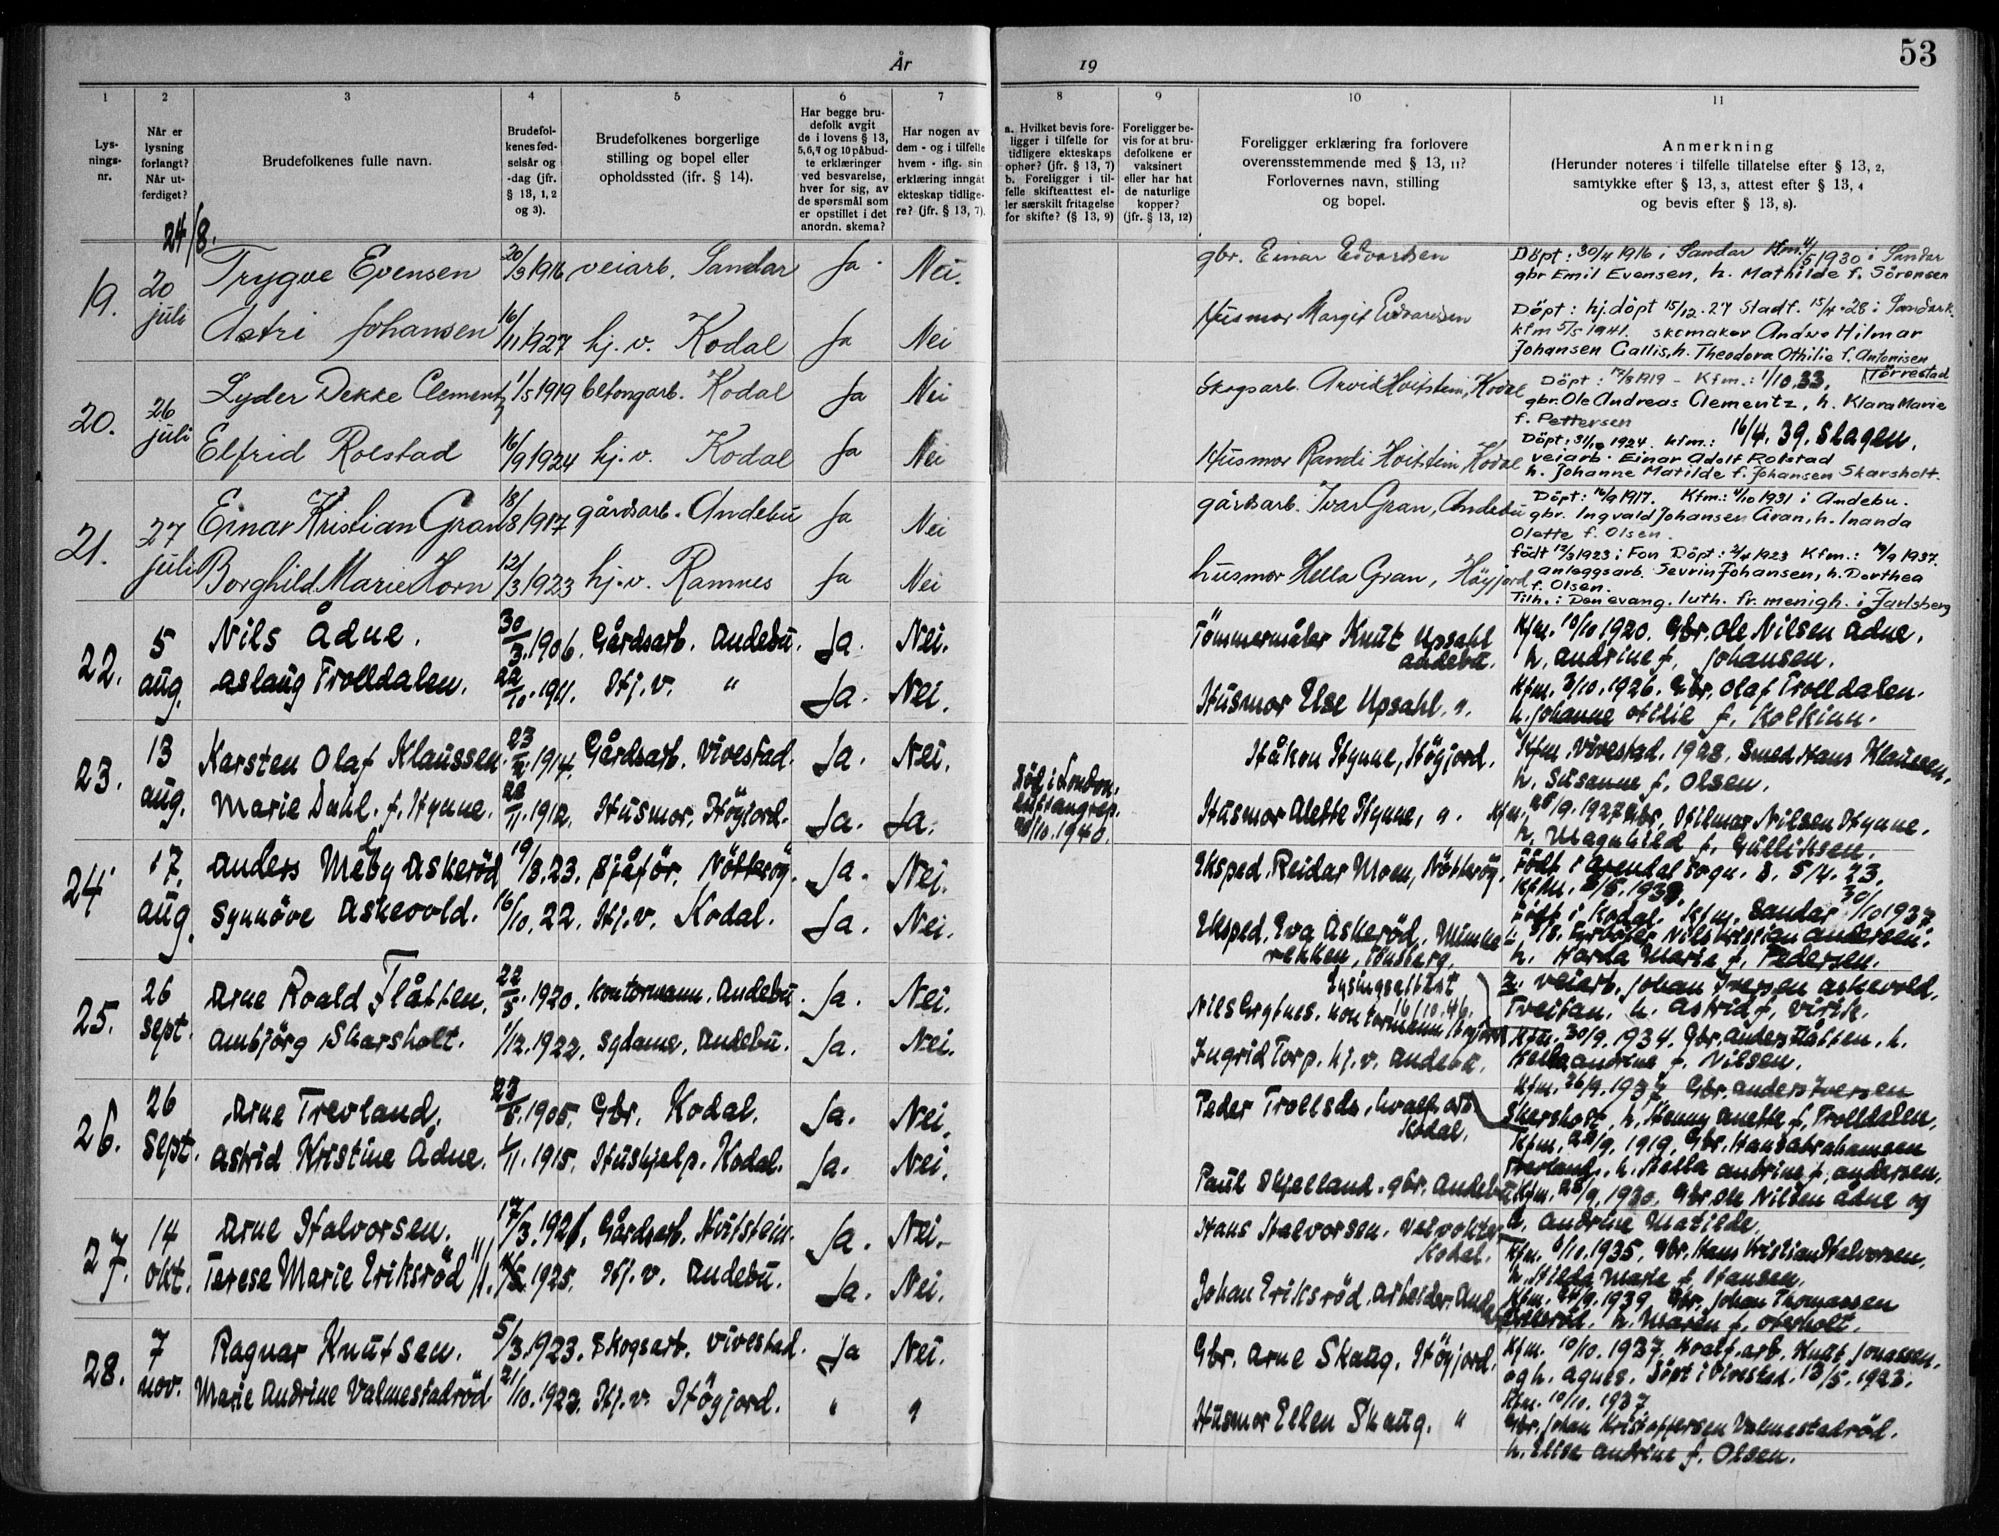 53
År 19
1 2 3 4 5 6 7 8 9 10 11
Lysnings-nr.
Når er lysning forlangt? Når utferdiget?
Brudefolkenes fulle navn.
Brudefolkenes fødselsår og -dag (jfr. § 13, 1, 2 og 3).
Brudefolkenes borgerlige stilling og bopel eller opholdssted (ifr. § 14).
Har begge brudefolk avgit de i lovens § 13, 5,6,9 og 10 påbudte erklæringer ved besvarelse, hver for sig, av de spørsmål som er opstillet i det anordn. skema?
Har nogen av dem - og i tilfelle hvem - iflg. sin erklæring inngåt ekteskap tidligere? (jfr. § 13, 7).
a. Hvilket bevis foreligger i tilfelle for tidligere ekteskaps ophør? (jfr. § 13, 7) b. Foreligger i tilfelle skifteattest eller særskilt fritagelse for skifte? (§ 13, 9)
Foreligger bevis for at brudefolkene er vaksinert eller har hat de naturlige kopper? (jfr. § 13, 12)
Foreligger erklæring fra forlovere overensstemmende med § 13, 11? Forlovernes navn, stilling og bopel.
Anmerkning (Herunder noteres i tilfelle tillatelse efter § 13, 2, samtykke efter § 13, 3, attest efter § 13, 4 og bevis efter § 13, 8).
24/8.
19. 20 juli Trygve Evensen 20/3 1916 veiarb. Sandar Ja Nei. gbr. Einar Edvardsen
Döpt: 30/4 1916 i Sandar Kfm. 4/5 1930 i Sandar
gbr Emil Evensen, h. Mathilde f. Sörensen
Astri Johansen 16/11 1927 hj.v. Kodal Ja Nei Husmor Margit Edvardsen
Döpt: hj.döpt 15/12.27 Stadf. 15/4-28 i Sandar k.
kfm 5/5 1941. skomaker Andre Hilmar
Johansen Gallis, h. Theodora Othilie f. Antonisen
Törrestad
20. 26 juli Lyder Dekke Clementz 1/5 1919 betongarb. Kodal Ja Nei Skogsarb. Arvid Hvitstein, Kodal
Döpt: 17/8 1919 - Kfm.: 1/10.33.
gbr. Ole Andreas Clementz, h. Klara Marie
f. Pettersen
Elfrid Rolstad 16/9 1924 hj.v. Kodal Ja Nei Husmor Randi Hvitstein, Kodal
16/4. 39. Slagen.
Döpt: 31/12 1924. kfm.:
veiarb. Einar Adolf Rolstad
h. Johanne Matilde f. Johansen Skarsholt.
21. 27 juli Einar Kristian Gran 18/8 1917 gårdsarb. Andebu Ja Nei gårdsarb. Ivar Gran, Andebu
Döpt: 16/9 1917. Kfm.: 4/10 1931 i Andebu.
gbr. Ingvald Johansen Gran, h. Inanda
Olette f. Olsen.
Borghild Marie Horn 12/3 1923 hj.v. Ramnes Ja Nei husmor Hella Gran, Höyjord
födt 12/3 1923 i Fon Döpt: 2/4 1923 Kfm.: 19/9 1937.
anleggsarb. Sevrin Johansen, h. Dorthea
f. Olsen.
Tilh.: Den evang. luth. fr. menigh. i Jarlsberg
22. 5 aug. Nils Ådne. 30/3. 1906. Gårdsarb. Andebu. Ja. Nei. Tömmermåler Knut Upsahl Andebu.
Kfm. 10/10 1920. Gbr. Ole Nilsen Ådne.
h. Andrine f. Johansen.
Aslaug Trolldalen. 22/10. 1911. Hj.v. " Ja. Nei. Husmor Else Upsahl. ".
Kfm. 3/10. 1926. Gbr. Olaf Trolldalen.
h. Johanne Otilie f. Kolkinn.
23. 13 aug. Karsten Olaf Klaussen. 1914. Gårdsarb. Vivestad. Ja. Nei. Håkon Hynne, Höyjord.
Kfm. Vivestad. 1928. Smed Hans Klaussen,
h. Susanne f. Olsen.
Marie Dahl. f. Hynne. 1912. Husmor. Höyjord. Ja. Ja. Död i London. luftangrep. 1940.
Husmor Alette Hynne, ". Kfm. 1927 Gbr. Hilmar Nilsen Hynne.
h. Magnhild f. Gulliksen.
24 17. aug. Anders Meby Askeröd 19/3.23. Sjåför. Nötteröy. Ja. Nei. Eksped. Reidar Moen, Nötteröy.
Födt i Arendal sogn. D. 5/4. 23.
Synnöve Askevold. 16/10. 22. Hj.v. Kodal. Ja. Nei. Eksped. Eva Askeröd. rekken, Tönsberg.
Födt i Kodal. Kfm. Sandar 30/10 1937
Nils Kristian Andersen.
h. Harda Marie f. Pedersen.
25. 26 sept. Arne Roald Flåtten. 22/5. 1920. Kontormann. Andebu. Ja. Nei. Nils Grytnes. Kontormann
Lysingsattest 16/10.46.
veiarb. Johan Iversen Askevold.
Treitan. h. Astrid f. Virik.
Ambjörg Skarsholt. 1/12. 1922. Sydame. Andebu. Ja. Nei. Ingrid Torp. hj.v. Andebu.
Kfm. 30/9. 1934. Gbr. Anders Flåtten, h.
Andrine f. Nilsen.
26. 26 sept. Arne Trevland. 1905. Gbr. Kodal. Ja. Nei. Peder Trollsås, Kodal.
Kfm. 26/9. 1937 Gbr. Anders Iversen
Skarsholt, h. Henny Anette f. Trolldalen.
Kfm. 1919. Gbr. Hans Abrahamsen
Trevland. h. Hella Andrine f. Andersen.
Astrid Kristine Ådne. 1/11. 1915. Hushjelp. Kodal. Ja. Nei. Paul Skjelland. gbr. Andebu
Kfm. 1930. Gbr. Ole Nilsen Ådne og
h. Andrine Matilde.
27. 14 okt. Arne Halvorsen. 17/3. 1921. Gårdsarb. Hvitstein. Ja. Nei. Hans Halvorsen. Veivokter Kodal.
Kfm. 6/10. 1935. Gbr. Hans Kristian Halvorsen.
h. Hilda Marie f. Hansen.
Terese Marie Eriksröd 1925. Hj.v. Andebu. Ja. Nei. Johan Eriksröd. Arbeider. Andebu
Kfm. 24/9. 1939. Gbr. Johan Thomassen
Eriksröd. h. Maren f. Oterholt.
28. 7 nov. Ragnar Knutsen. 5/3. 1923. Skogsarb. Vivestad. Ja Nei. Gbr. Arne Skaug. Höyjord.
Kfm. 10/10. 1937. Hvalf.arb. Knut Jonassen.
og h. Agnes. Döpt i Vivestad. 13/5. 1923.
Marie Andrine Valmestadröd 21/10. 1923. Hj.v. Höyjord. " " Husmor Ellen Skaug. "
Kfm. 10/10. 1937
Gbr. Johan Kristoffersen Valmestadröd.
h. Ellse Andrine f. Olsen.